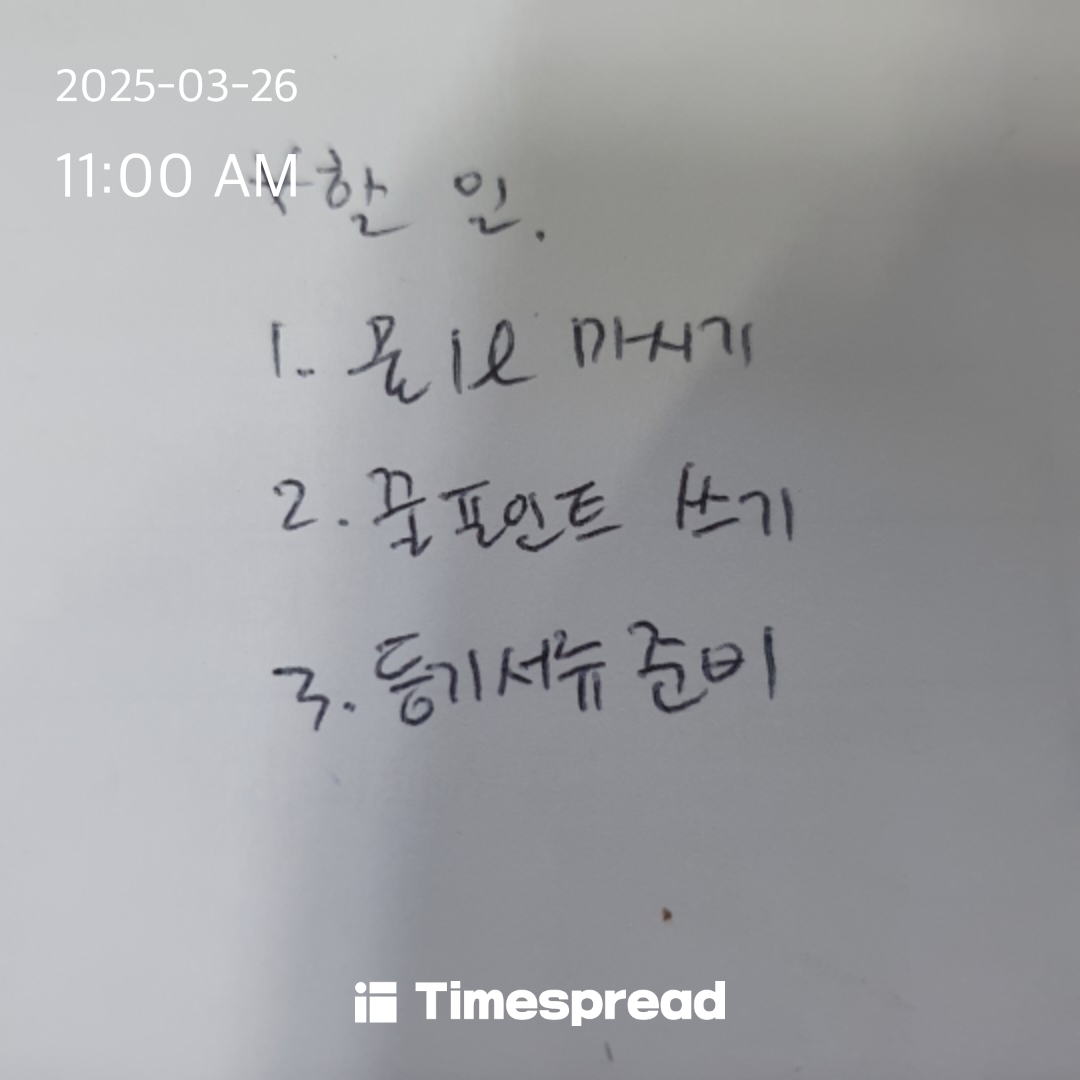 2025-03-26
11:00 AM
* 할 일.
1. 물 1ℓ 마시기
2. 꿀포인트 쓰기
3. 등기서류 준비
Timespread